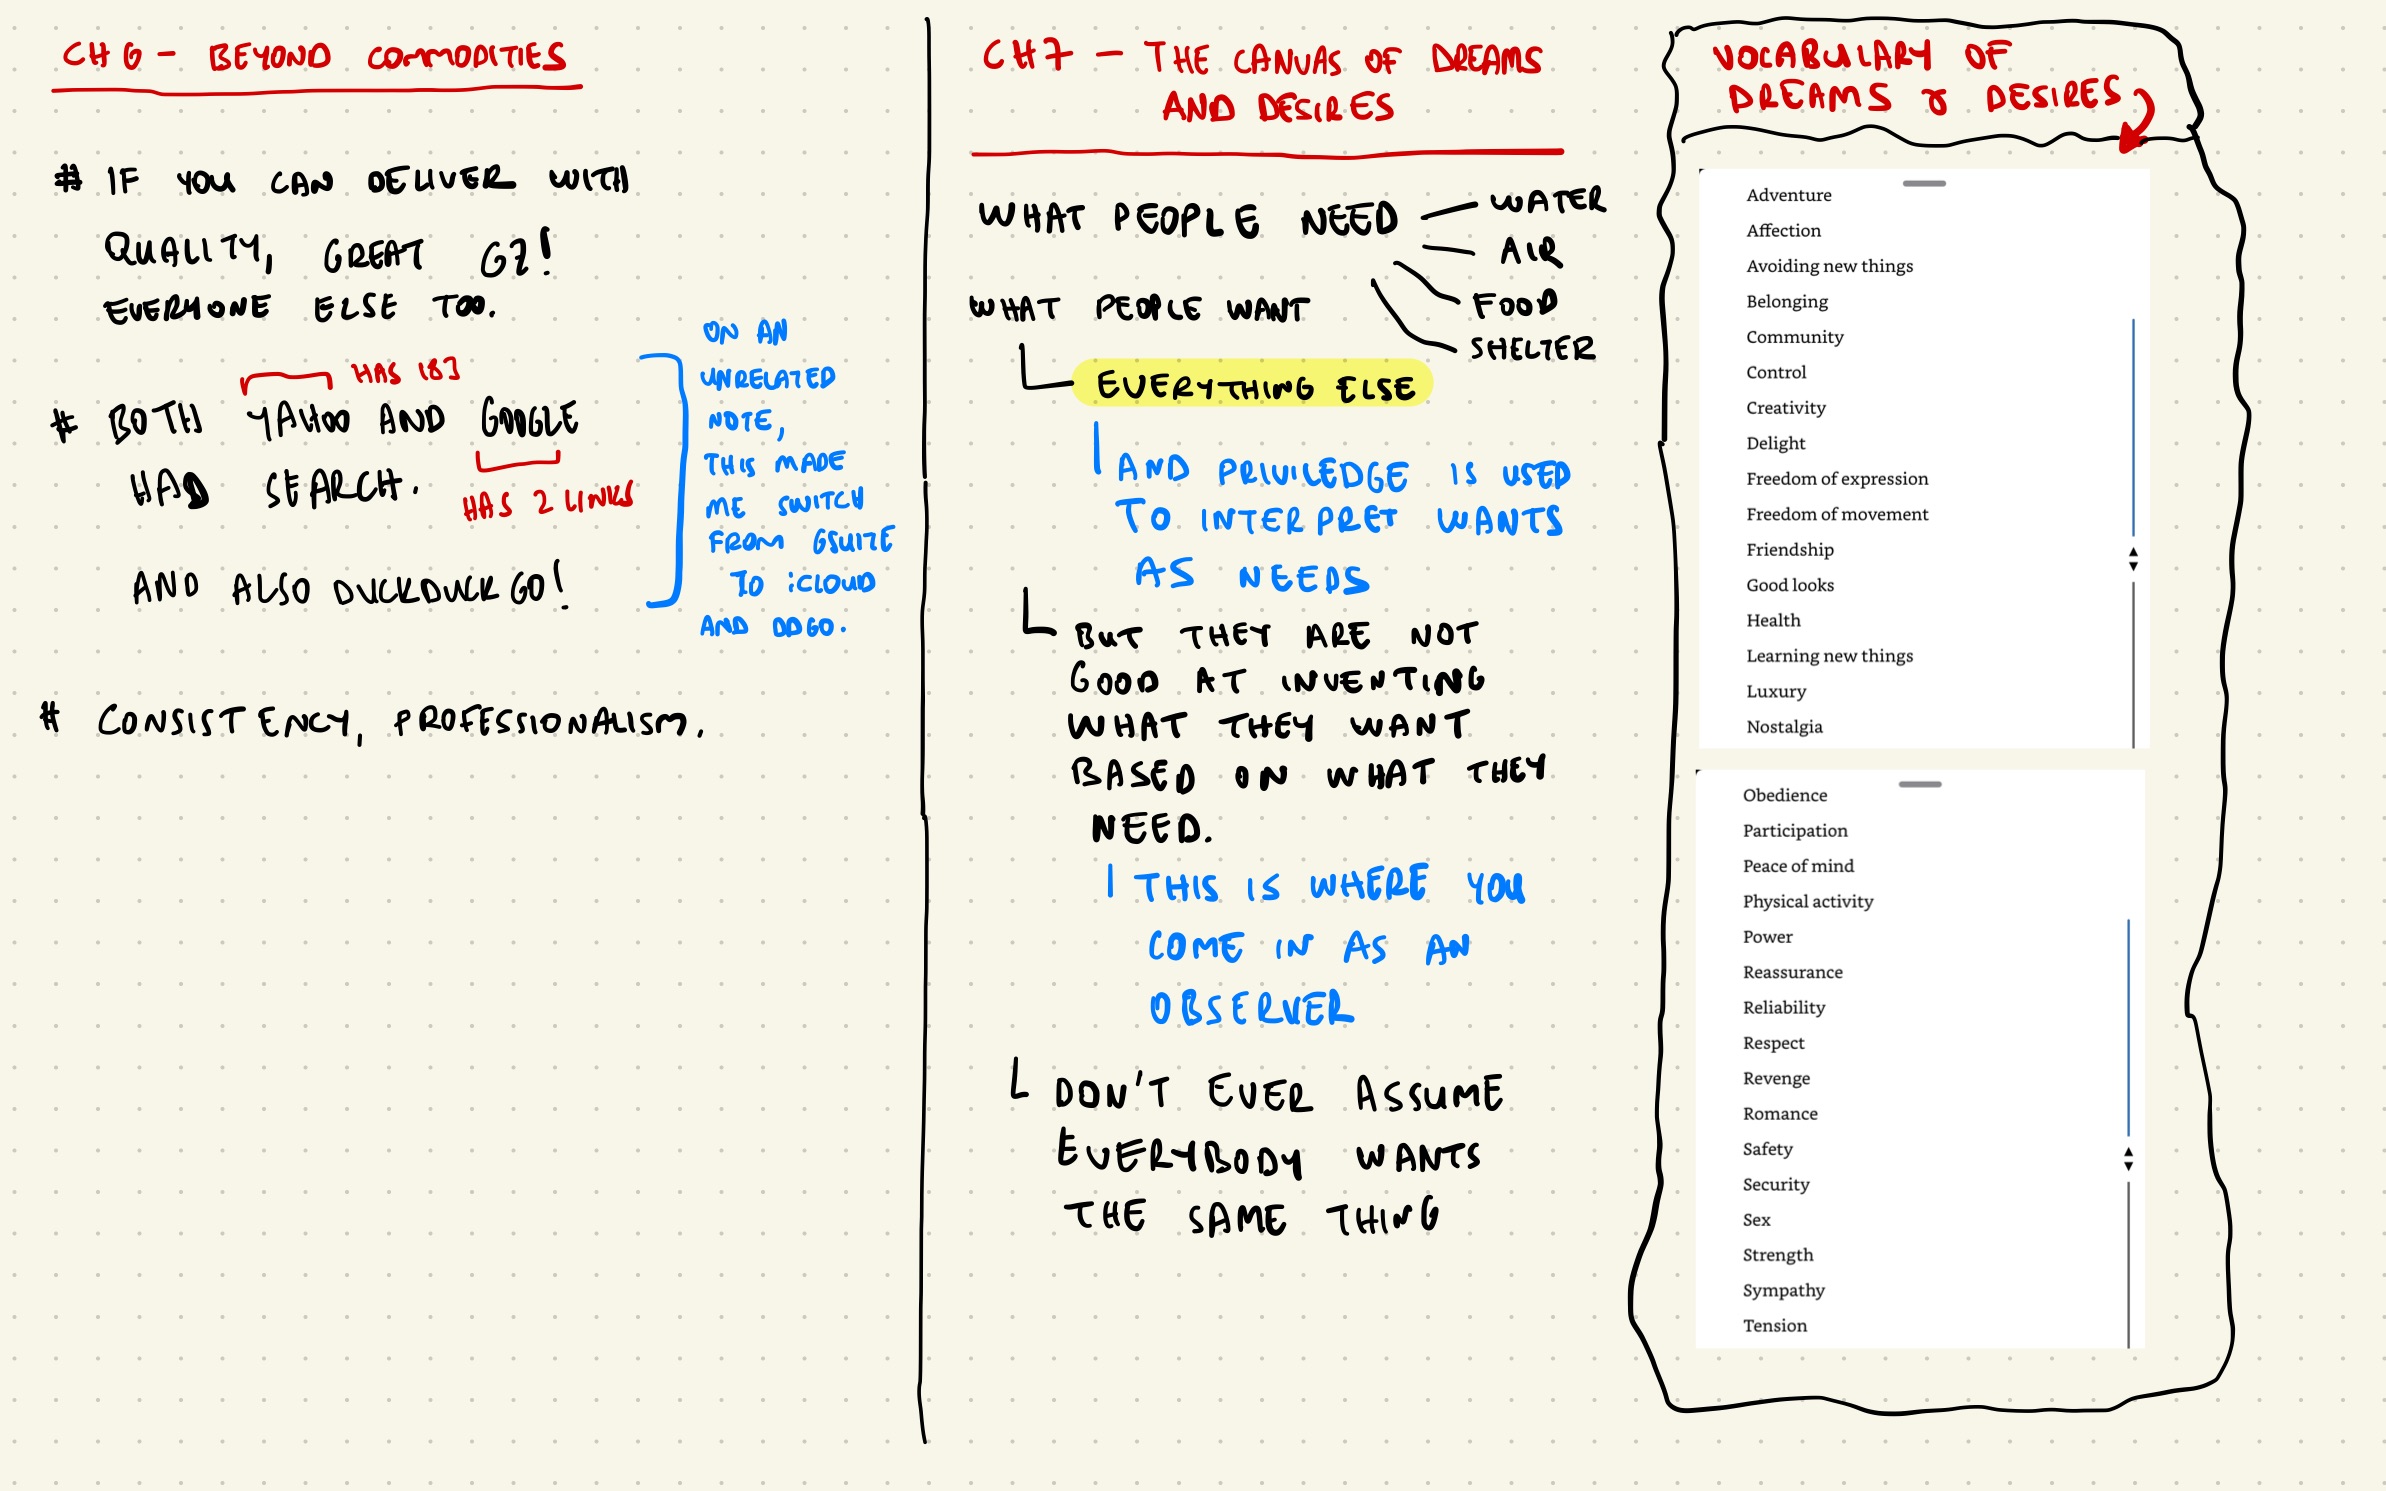 CH 6 - BEYOND COMMODITIES
# IF YOU CAN DELIVER WITH
QUALITY, GREAT GZ!
EVERYONE ELSE TOO.
HAS 183
# BOTH YAHOO AND GOOGLE
HAD SEARCH.
HAS 2 LINKS
AND ALSO DUCKDUCKGO!
ON AN
UNRELATED
NOTE,
THIS MADE
ME SWITCH
FROM GSUITE
TO iCLOUD
AND DDGO.
# CONSISTENCY, PROFESSIONALISM.
CH7 - THE CANVAS OF DREAMS
AND DESIRES
WHAT PEOPLE NEED
WATER
AIR
FOOD
SHELTER
WHAT PEOPLE WANT
EVERYTHING ELSE
AND PRIVILEDGE IS USED
TO INTERPRET WANTS
AS NEEDS
BUT THEY ARE NOT
GOOD AT INVENTING
WHAT THEY WANT
BASED ON WHAT THEY
NEED.
THIS IS WHERE YOU
COME IN AS AN
OBSERVER
DON'T EVER ASSUME
EVERYBODY WANTS
THE SAME THING
VOCABULARY OF
DREAMS & DESIRES
Adventure
Affection
Avoiding new things
Belonging
Community
Control
Creativity
Delight
Freedom of expression
Freedom of movement
Friendship
Good looks
Health
Learning new things
Luxury
Nostalgia
Obedience
Participation
Peace of mind
Physical activity
Power
Reassurance
Reliability
Respect
Revenge
Romance
Safety
Security
Sex
Strength
Sympathy
Tension